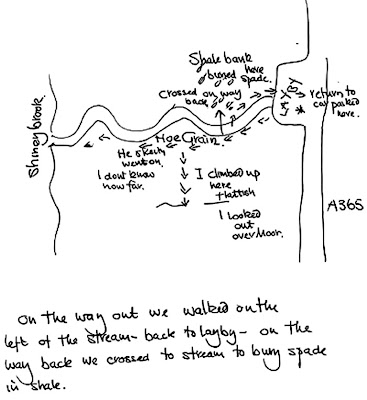 Shale bank
buried here
spade.
crossed on way
back
LAYBY
return to
car parked
here.
Shiney brook.
Hoe Grain.
He
went on.
I dont know
how far.
I climbed up
here
flattish
I looked
out
over Moor.
A365
on the way out we walked on the
left of the stream - back to layby - on the
way back we crossed to stream to bury spade
in shale.